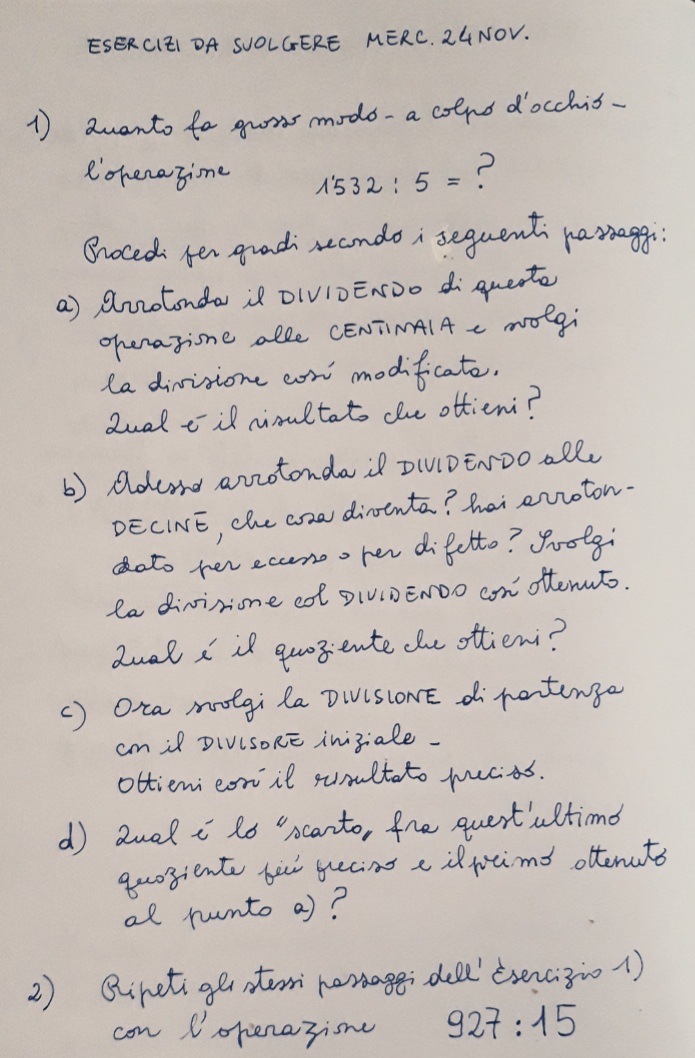 ESERCIZI DA SVOLGERE MERC. 24 NOV.
1) Quanto fa grosso modo - a colpo d'occhio -
l'operazione 1'532 : 5 = ?
Procedi per gradi secondo i seguenti passaggi:
a) Arrotonda il DIVIDENDO di questa
operazione alle CENTINAIA e svolgi
la divisione così modificata.
Qual è il risultato che ottieni?
b) Adesso arrotonda il DIVIDENDO alle
DECINE, che cosa diventa? hai arroton-
dato per eccesso o per difetto? Svolgi
la divisione col DIVIDENDO così ottenuto.
Qual é il quoziente che ottieni?
c) Ora svolgi la DIVISIONE di partenza
con il DIVISORE iniziale -
Ottieni così il risultato preciso.
d) Qual é lo "scarto" fra quest'ultimo
quoziente più preciso e il primo ottenuto
al punto a)?
2) Ripeti gli stessi passaggi dell'Esercizio 1)
con l'operazione 927 : 15